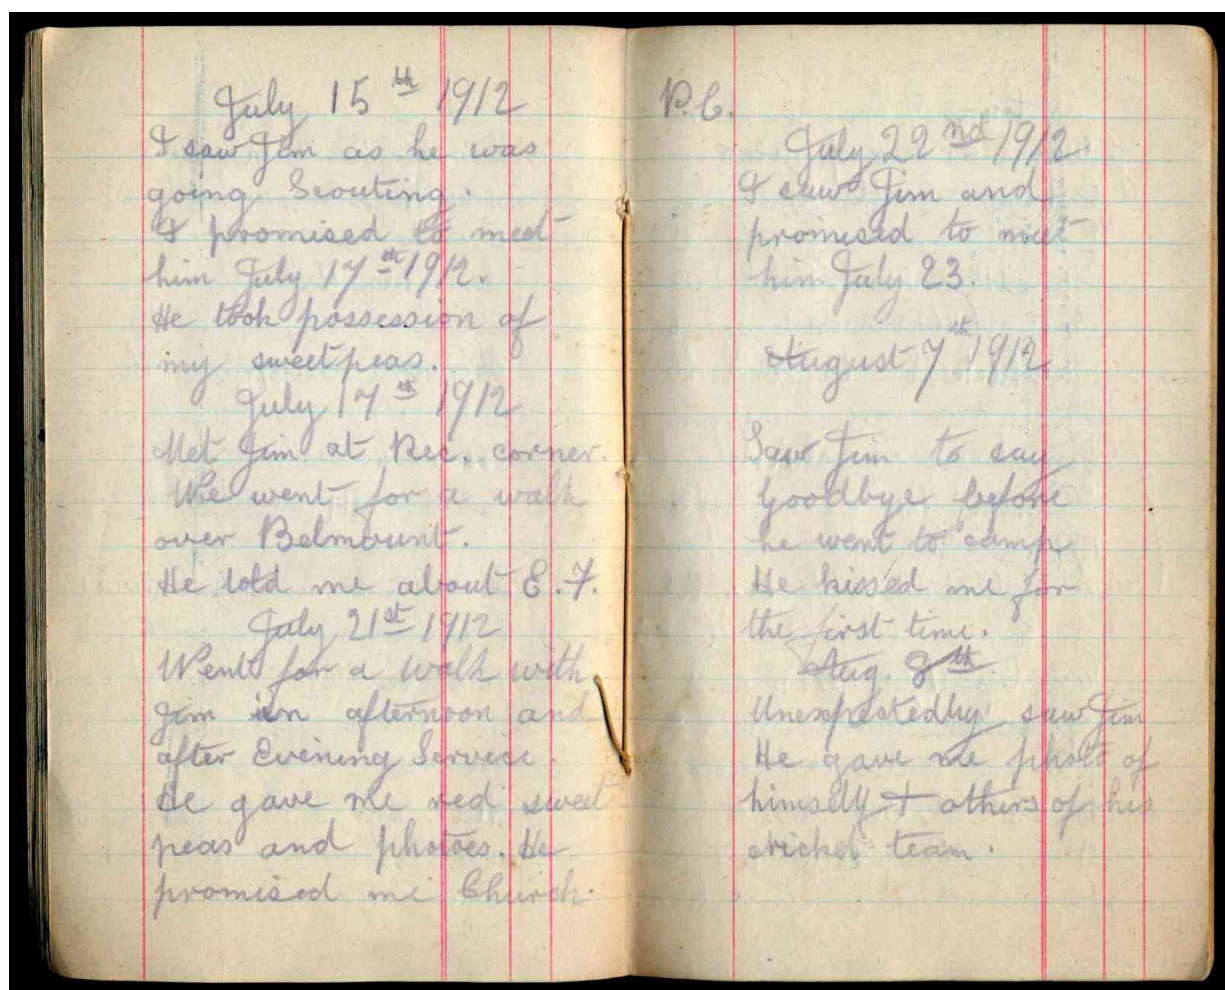 July 15th 1912
I saw Jim as he was
going Scouting.
I promised to meet
him July 17th 1912.
He took possession of
my sweetpeas.
July 17th 1912
Met Jim at Rec. corner.
We went for a walk
over Belmount.
He told me about E.F.
July 21st 1912
Went for a walk with
Jim in afternoon and
after Evening Service.
He gave me red sweet
peas and photoes. He
promised me Church.
P.C.
July 22nd 1912
I saw Jim and
promised to meet
him July 23.
August 7th 1912
Saw Jim to say
Goodbye before
he went to camp
He kissed me for
the first time.
Aug. 8th
Unexpectedly saw Jim
He gave me photo of
himself & others of his
cricket team.